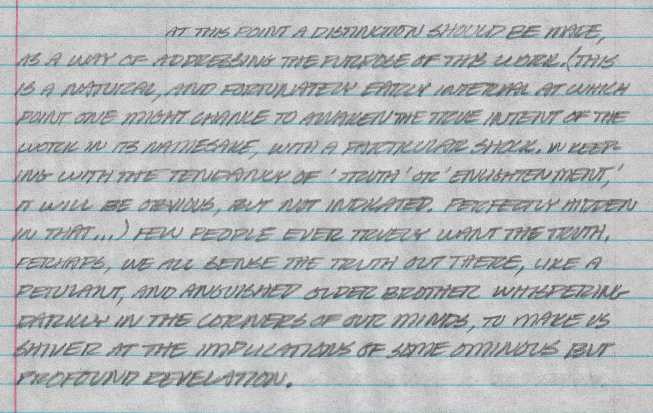 AT THIS POINT A DISTINCTION SHOULD BE MADE,
AS A WAY OF ADDRESSING THE PURPOSE OF THIS WORK. (THIS
IS A NATURAL, AND FORTUNATELY EARLY INTERVAL AT WHICH
POINT ONE MIGHT CHANCE TO AWAKEN THE TRUE INTENT OF THE
WORK IN ITS NAMESAKE, WITH A PARTICULAR SHOCK. IN KEEP-
ING WITH THE TENDANCY OF 'TRUTH' OR 'ENLIGHTENMENT,'
IT WILL BE OBVIOUS, BUT NOT INDICATED. PERFECTLY HIDDEN
IN THAT...) FEW PEOPLE EVER TRUELY WANT THE TRUTH.
PERHAPS, WE ALL SENSE THE TRUTH OUT THERE, LIKE A
PETULANT, AND ANGUISHED OLDER BROTHER WHISPERING
DARKLY IN THE CORNERS OF OUR MINDS, TO MAKE US
SHIVER AT THE IMPLICATIONS OF SOME OMINOUS BUT
PROFOUND REVELATION.